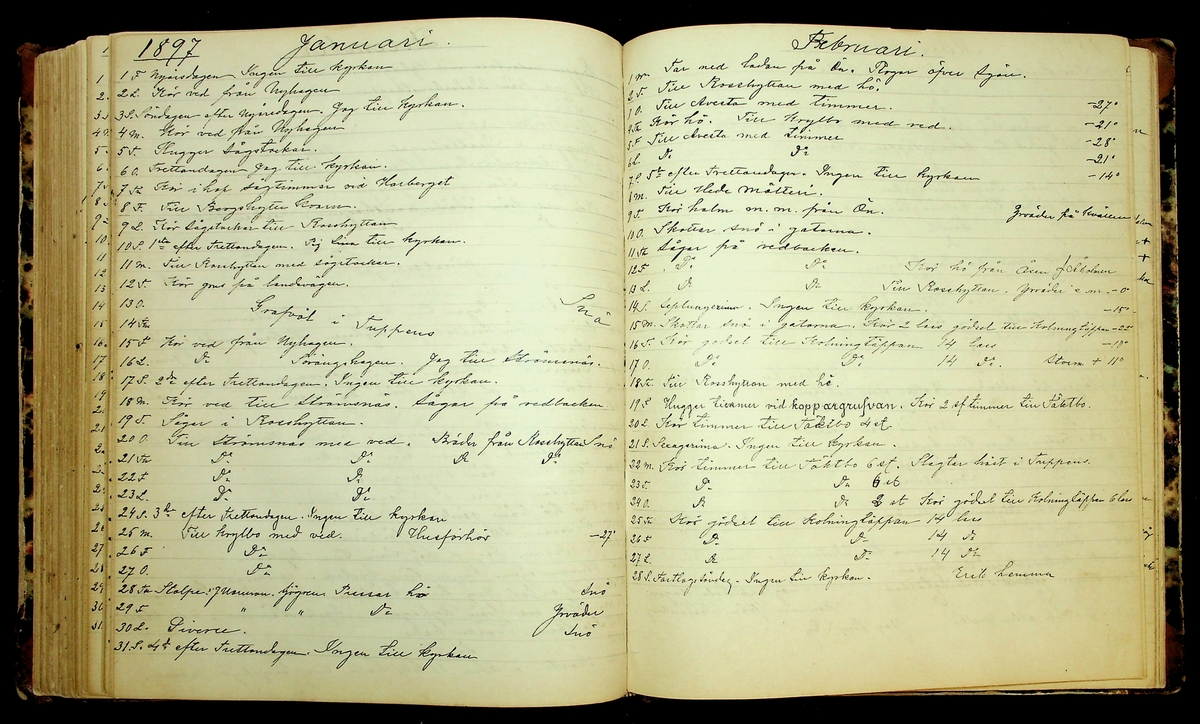 1897 Januari.
1 F Nyårsdagen Ingen till kyrkan
2 L. Kör ved från Nyhagen
3 S. Söndagen efter Nyårsdagen Jag till kyrkan.
4 M. Kör ved från Nyhagen
5 T. Hugger sågstockar.
6 O. Trettondagen Jag till kyrkan.
7 To Kör i hop sågtimmer vid Harberget
8 F. Till Bergshytte kvarn.
9 L. Kör sågstockar till Rosshyttan
10 S. 1sta efter Trettondagen. Lina till kyrkan.
11 M. Till Rosshyttan med sågstockar.
12 T. Kör grus på landsvägen.
13 O.
Grafvöl i Tuppens Snö
14 To
15 F Kör ved från Nyhagen.
16 L. Do Sörängshagen. Jag till Strömsnäs.
17 S. 2da efter Trettondagen. Ingen till kyrkan.
18 M. Kör ved till Strömsnäs. Sågar på vedbacken
19 T. Säger i Rosshyttan.
20 O. Till Strömsnäs med ved. Bräder från Rosshyttan Snö
21 To Do Do Do Do
22 F Do Do
23 L. Do Do
24 S. 3dje efter Trettondagen. Ingen till kyrkan
25 M. Till Krylbo med ved. Husförhör -27°
26 T Do
27 O. Do
28 To Stolpe Pressar hö Snö
29 F " " Do Yrväder
30 L. Diverse. Snö
31 S. 4de efter Trettondagen. Ingen till kyrkan
Februari.
1 M. Tar ned ladan på Ön. Roger öfver sjön.
2 T. Till Rosshyttan med hö.
O. Till Avesta med timmer. -27°
To Kör hö. Till Krylbo med ved. -21°
5 F Till Avesta med timmer -28°
6 L. Do Do -21°
7 S. 5te efter Trettondagen. Ingen till kyrkan -14°
8 M. Till Hede mölleri.
9 T. Kör halm m.m. från Ön. Yrväder på kvällen
10 O. Skottar snö i gatorna.
11 To Sågar på vedbacken
12 F Do Do Kör hö från Åsen f. Skolmer
13 L. Do Do Till Rosshyttan. Yrväder e m. -0
14 S. Septuagesima. Ingen till kyrkan. -15°
15 M. Skottar snö i gatorna. Kör 2 lass gödsel till Kolningtäppan -22
16 T. Kör gödsel till Kolningtäppan 14 lass -19°
17 O. Do Do 14 Do. Storm + 11°
18 To Till Rosshyttan med hö.
19 F Hugger timmer vid koppargrufvan. Kör 2 st timmer till Täktbo.
20 L Kör timmer till Täktbo 4 st
21 S. Sexagesima. Ingen till kyrkan.
22 M. Kör timmer till Täktbo 6 st. Slagtar häst i Tuppens.
23 T. Do Do 6 st
24 O. Do Do 2 st Kör gödsel till Kolningtäppan 6 lass
25 To Kör gödsel till Kolningtäppan 14 lass
26 F Do Do 14 Do
27 L. Do Do 14 Do
28 S. Fastlagssöndag. Ingen till kyrkan. Erik hemma